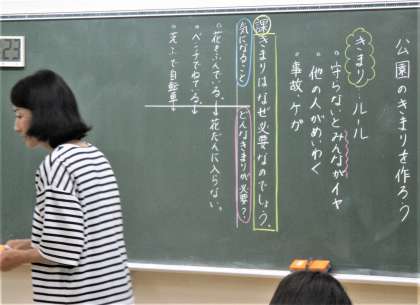 公園のきまりを作ろう
きまり・ルール
・守らないとみんながイヤ
・他の人がめいわく
・事故、ケガ
課 きまりは、なぜ必要なのでしょう。
気になること
どんなきまりが必要?
・花をふんでいる。→花だんに入らない。
・ベンチでねている。→
・天ふで自転車→
23